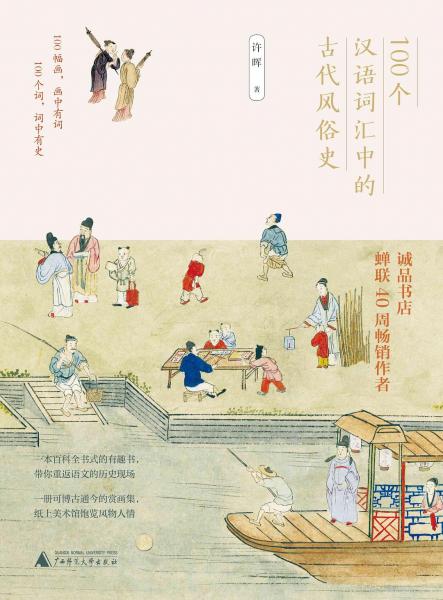 100个
汉语词汇中的
古代风俗史
许晖 著
100幅画，画中有词
100个词，词中有史
诚品书店
蝉联40周畅销作者
一本百科全书式的有趣书，
带你重返语文的历史现场
一册可博古通今的赏画集，
纸上美术馆饱览风物人情
GUANGXI NORMAL UNIVERSITY PRESS
广西师范大学出版社